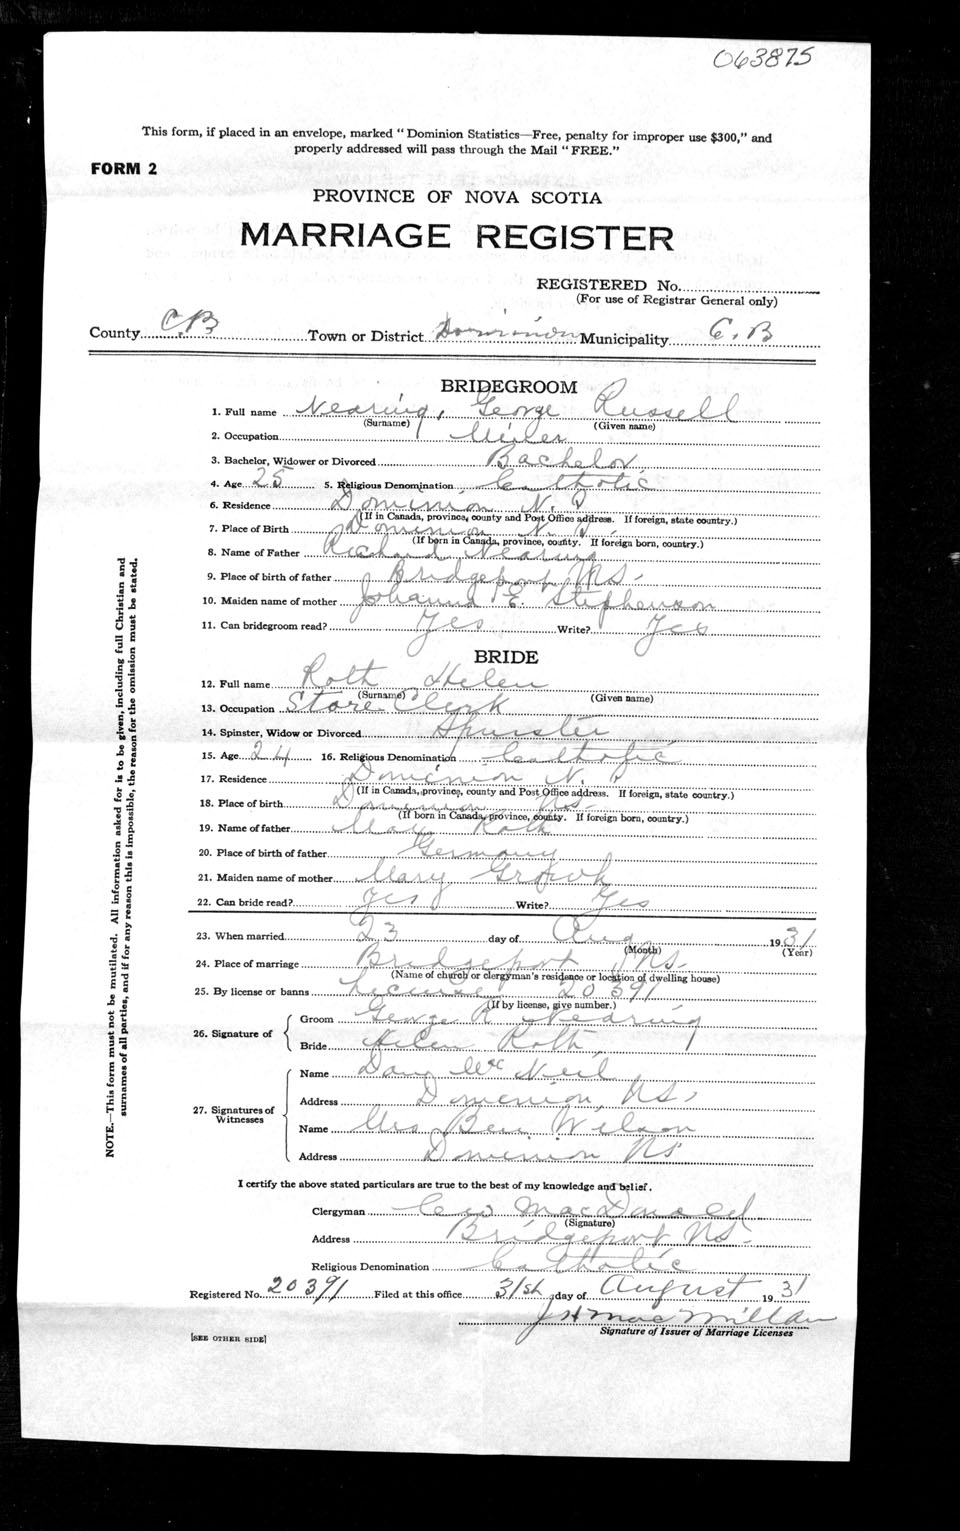 063875
This form, if placed in an envelope, marked "Dominion Statistics—Free, penalty for improper use $300," and
properly addressed will pass through the Mail "FREE."
FORM 2
PROVINCE OF NOVA SCOTIA
MARRIAGE REGISTER
REGISTERED No.
(For use of Registrar General only)
County C.B Town or District Dominion Municipality C.B
BRIDEGROOM
1. Full name Nearing, George Russell
(Surname) (Given name)
2. Occupation Miner
3. Bachelor, Widower or Divorced Bachelor
4. Age 25 5. Religious Denomination Catholic
6. Residence Dominion N.S
(If in Canada, province, county and Post Office address. If foreign, state country.)
7. Place of Birth Dominion N.S.
(If born in Canada, province, county. If foreign born, country.)
8. Name of Father Richard Nearing
9. Place of birth of father Bridgeport NS.
10. Maiden name of mother Johanna E. Stephenson
11. Can bridegroom read? Yes Write? Yes
BRIDE
12. Full name Roth Helen
(Surname) (Given name)
13. Occupation Store Clerk
14. Spinster, Widow or Divorced Spinster
15. Age 24 16. Religious Denomination Catholic
17. Residence Dominion N.S
(If in Canada, province, county and Post Office address. If foreign, state country.)
18. Place of birth Dominion NS.
(If born in Canada, province, county. If foreign born, country.)
19. Name of father Roth
20. Place of birth of father Germany
21. Maiden name of mother Mary
22. Can bride read? Yes Write? Yes
23. When married 23 day of Aug 1931
(Month) (Year)
24. Place of marriage Bridgeport NS
(Name of church or clergyman's residence or location of dwelling house)
25. By license or banns License 20391
(If by license, give number.)
26. Signature of Groom George R Nearing
Bride Helen Roth
27. Signatures of Witnesses
Name Dan McNeil
Address Dominion, NS,
Name Mrs Ben Wilson
Address Dominion NS
I certify the above stated particulars are true to the best of my knowledge and belief.
Clergyman MacDonald
(Signature)
Address Bridgeport NS.
Religious Denomination Catholic
Registered No. 20391 Filed at this office 31st day of August 1931
J H MacMillan
Signature of Issuer of Marriage Licenses
[SEE OTHER SIDE]
NOTE.—This form must not be mutilated. All information asked for is to be given, including full Christian and
surnames of all parties, and if for any reason this is impossible, the reason for the omission must be stated.